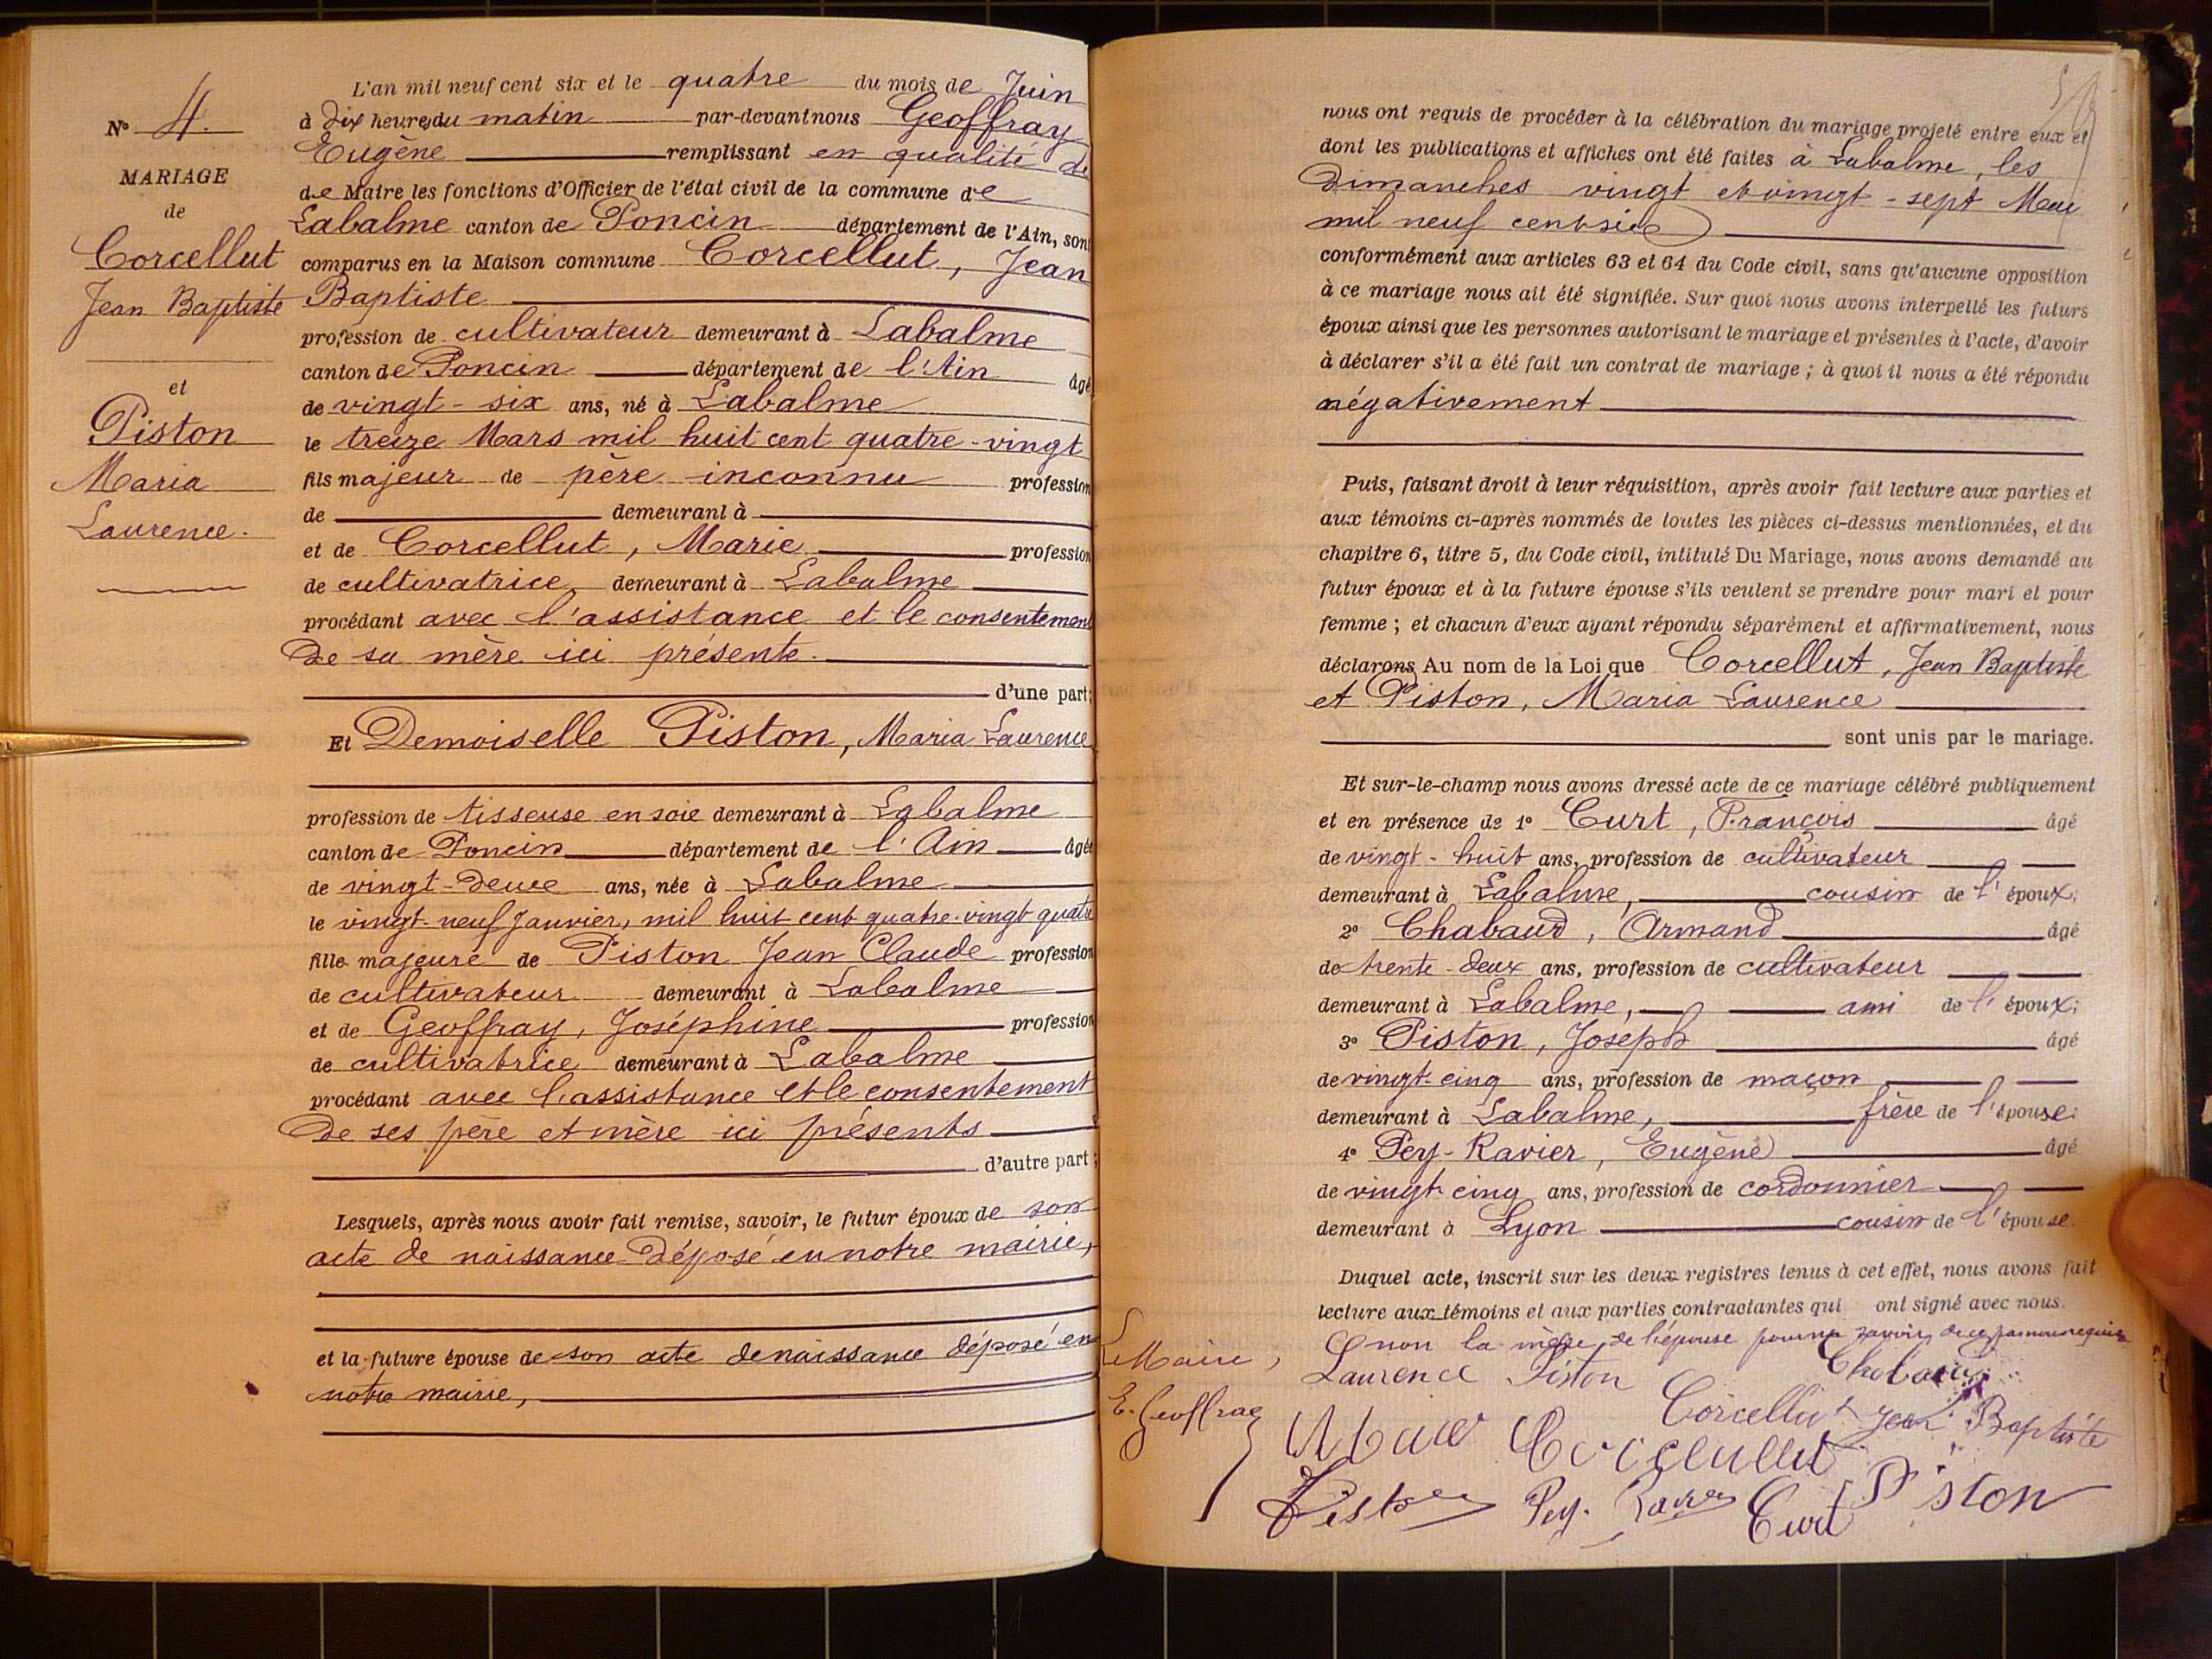 N° 4.
MARIAGE
de
Corcellut
Jean Baptiste
et
Piston
Maria
Laurence.
L'an mil neuf cent six et le quatre du mois de Juin
à dix heures du matin par-devant nous Geoffray
Eugène remplissant en qualité de
de Maire les fonctions d'Officier de l'état civil de la commune de
Labalme canton de Poncin département de l'Ain, sont
comparus en la Maison commune Corcellut, Jean
Baptiste
profession de cultivateur demeurant à Labalme
canton de Poncin département de l'Ain âgé
de vingt-six ans, né à Labalme
le treize Mars mil huit cent quatre-vingt
fils majeur de père inconnu profession
de demeurant à
et de Corcellut, Marie profession
de cultivatrice demeurant à Labalme
procédant avec l'assistance et le consentement
de sa mère ici présente.
d'une part;
Et Demoiselle Piston, Maria Laurence
profession de tisseuse en soie demeurant à Labalme
canton de Poncin département de l'Ain âgée
de vingt-deux ans, née à Labalme
le vingt-neuf Janvier, mil huit cent quatre-vingt quatre
fille majeure de Piston Jean Claude profession
de cultivateur demeurant à Labalme
et de Geoffray, Joséphine profession
de cultivatrice demeurant à Labalme
procédant avec l'assistance et le consentement
de ses père et mère ici présents
d'autre part;
Lesquels, après nous avoir fait remise, savoir, le futur époux de son
acte de naissance déposé en notre mairie,
et la future épouse de son acte de naissance déposé en
notre mairie,
nous ont requis de procéder à la célébration du mariage projeté entre eux et
dont les publications et affiches ont été faites à Labalme, les
Dimanches vingt et vingt-sept Mai
mil neuf cent six
conformément aux articles 63 et 64 du Code civil, sans qu'aucune opposition
à ce mariage nous ait été signifiée. Sur quoi nous avons interpellé les futurs
époux ainsi que les personnes autorisant le mariage et présentes à l'acte, d'avoir
à déclarer s'il a été fait un contrat de mariage; à quoi il nous a été répondu
négativement
Puis, faisant droit à leur réquisition, après avoir fait lecture aux parties et
aux témoins ci-après nommés de toutes les pièces ci-dessus mentionnées, et du
chapitre 6, titre 5, du Code civil, intitulé Du Mariage, nous avons demandé au
futur époux et à la future épouse s'ils veulent se prendre pour mari et pour
femme; et chacun d'eux ayant répondu séparément et affirmativement, nous
déclarons Au nom de la Loi que Corcellut, Jean Baptiste
et Piston, Maria Laurence
sont unis par le mariage.
Et sur-le-champ nous avons dressé acte de ce mariage célébré publiquement
et en présence de 1° Curt, François âgé
de vingt-huit ans, profession de cultivateur
demeurant à Labalme, cousin de l'époux;
2° Chabaud, Armand âgé
de trente-deux ans, profession de cultivateur
demeurant à Labalme, ami de l'époux;
3° Piston, Joseph âgé
de vingt-cinq ans, profession de maçon
demeurant à Labalme, frère de l'épouse;
4° Pey-Ravier, Eugène âgé
de vingt-cinq ans, profession de cordonnier
demeurant à Lyon cousin de l'épouse.
Duquel acte, inscrit sur les deux registres tenus à cet effet, nous avons fait
lecture aux témoins et aux parties contractantes qui ont signé avec nous.
non la mère de l'épouse pour ne savoir de ce par nous requise
Le Maire,
Laurence Piston Chabaud
E. Geoffray
Corcellut Jean Baptiste
Marie Corcellut
Piston Pey-Ravier Curt Piston